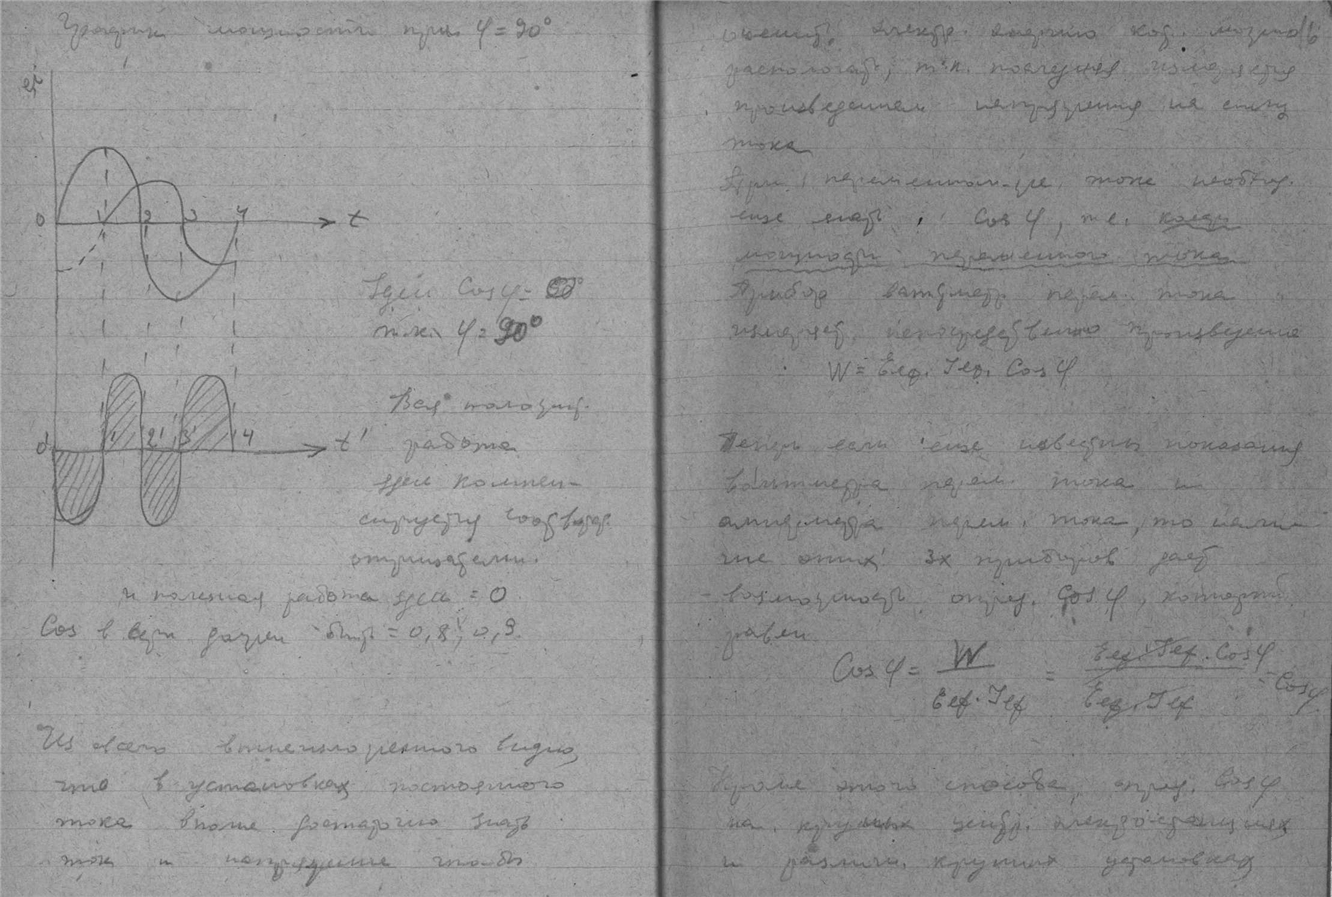 График мощности при φ = 90°
ei
0 1 2 3 4 t
Здесь Cos φ = 0°
т.к. φ = 90°
0 1' 2' 3' 4 t'
Вся полезн.
работа
здесь компен-
сируется соответ.
отрицательн.
и полезная работа здесь = 0.
Cos в сети должен быть = 0,8; 0,9.
Из всего вышеизложенного видно,
что в установках постоянного
тока вполне достаточно знать
ток и напряжение чтобы
оценить электр. энергию кот. можно
располагать, т.к. последняя измеряется
произведением напряжения на силу
тока
При переменном же токе необход.
еще знать Cos φ, т.е. коэф.
мощности переменного тока
Прибор ваттметр перем. тока
измеряет непосредственно произведение
W = Eeф. Jeф. Cos φ
Теперь если еще известны показания
вольтметра перем. тока и
амперметра перем. тока, то наличи
чие этих 3х приборов дает
возможность опред. Cos φ, который
равен
Cos φ = W / Eef. Jef = Eef. Jef. Cos φ / Eef. Jef = Cos φ
Кроме этого способа, опред. Cos φ
на крупных центр. электростанциях
и различн. крупных установках